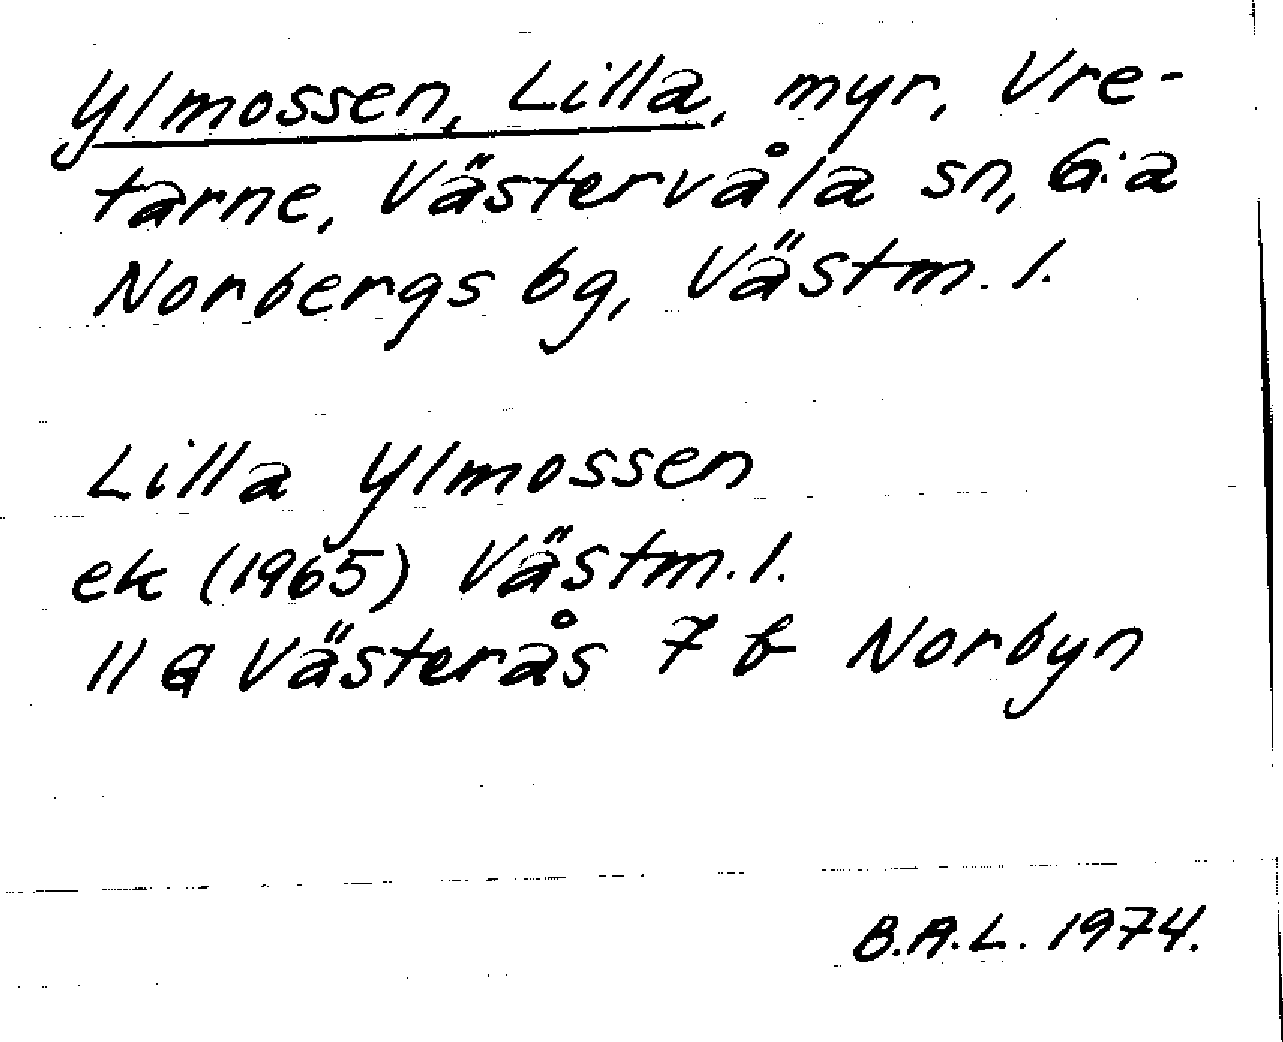 Ylmossen, Lilla, myr, Vre-
tarne, Västervåla sn, G:a
Norbergs bg, Västm. l.
Lilla Ylmossen
ek (1965) Västm. l.
11 G Västerås 7 b Norbyn
B.A.L. 1974.